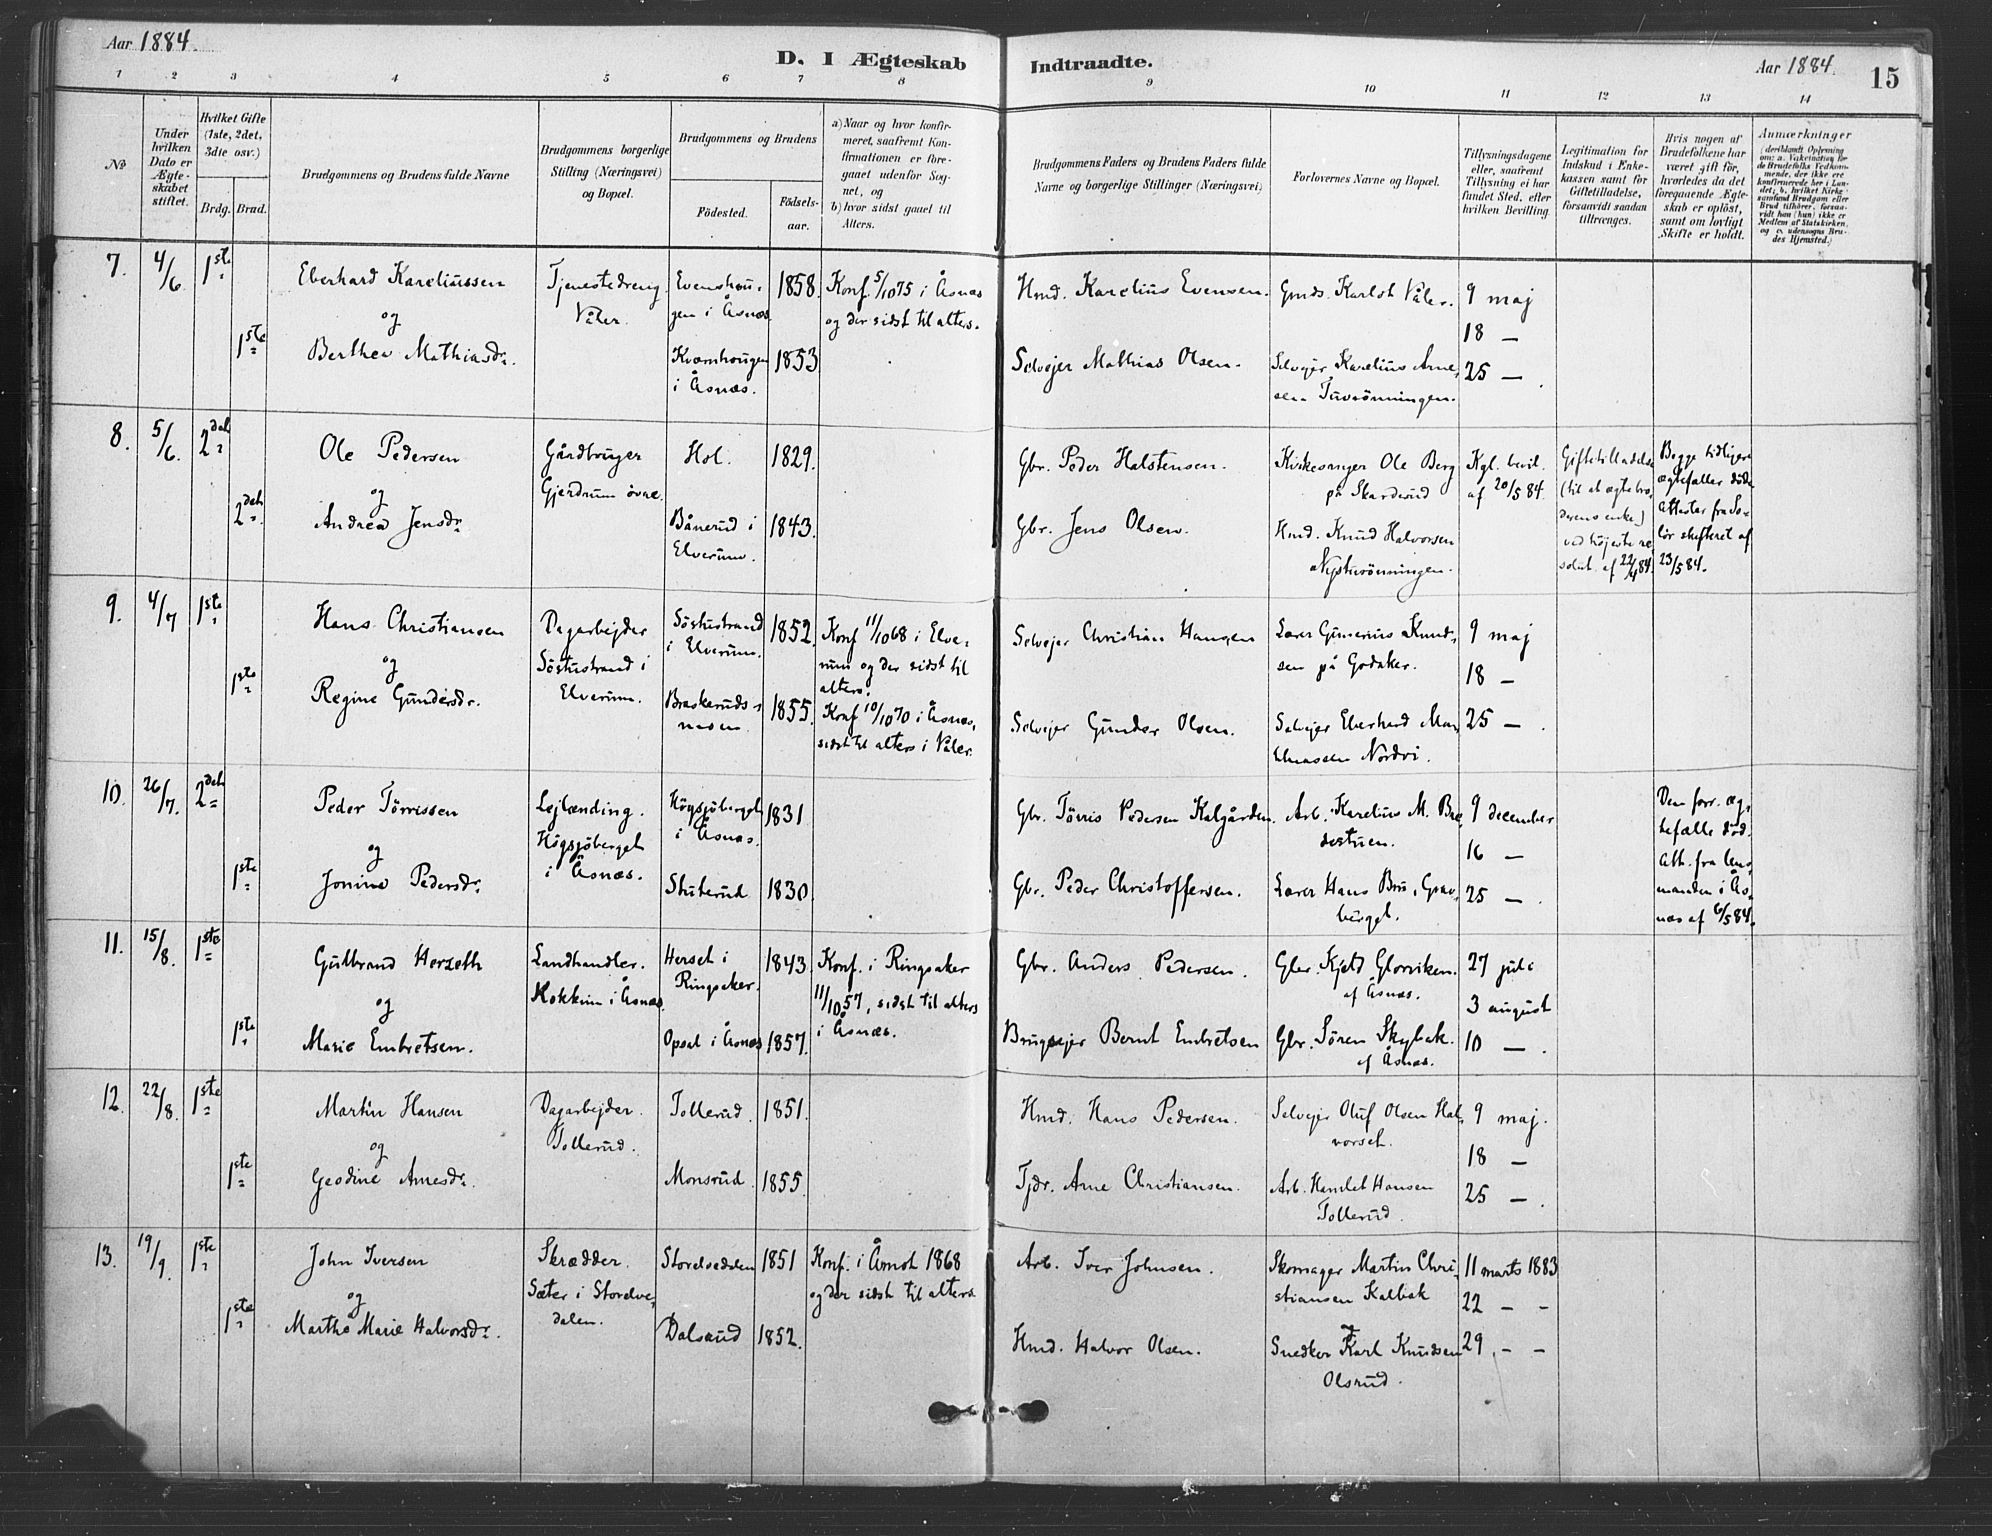 Aar 1884.
D. I Ægteskab Indtraadte.
Aar 1884.
15
1 2 3 4 5 6 7 8 9 10 11 12 13 14
No
Under hvilken Dato er Ægteskabet stiftet.
Hvilket Gifte (1ste, 2det, 3die osv.)
Brdg. Brud.
Brudgommens og Brudens fulde Navne
Brudgommens borgerlige Stilling (Næringsvei) og Bopæl.
Brudgommens og Brudens
Födested.
Födselsaar.
a) Naar og hvor konfirmeret, saafremt Konfirmationen er foregaaet udenfor Sognet, og
b) hvor sidst gaaet til Alters.
Brudgommens Faders og Brudens Faders fulde Navne og borgerlige Stillinger (Næringsvei)
Forlovernes Navne og Bopæl.
Tillysningsdagene eller, saafremt Tillysning ei har fundet Sted, efter hvilken Bevilling.
Legitimation for Indskud i Enkekassen samt for Giftetilladelse, forsaavidt saadan tiltrænges.
Hvis nogen af Brudefolkene har været gift för, hvorledes da det foregaaende Ægteskab er oplöst, samt om lovligt Skifte er holdt.
Anmærkninger
7. 4/6 1ste
Eberhard Kareliussen
og
1ste Berthea Mathiasdr.
Tjenestedreng
Våler.
Evenshaugen i Åsnæs 1858.
Kværnhaugen i Åsnæs. 1853
Konf. 5/10 75 i Åsnæs
og der sidst til alters.
Hmd. Karelius Evensen.
Selvejer Mathias Olsen.
Gmds. Karlst Våler.
Selvejer Karelius Arnesen
9 maj
18 —
25 —.
8. 5/6. 2det
Ole Pedersen
og
2det. Andrea Jensdr.
Gårdbruger
Gjerdrum övre.
Hol. 1829.
Bånerud i
Elverum. 1843.
Gbr. Peder Halstensen.
Gbr. Jens Olsen.
Kirkesanger Ole Berg
på Skarderud
Hmd. Knud Halvorsen
Nysturönningen.
Kgl. bevil.
af 20/5 84.
Giftetilladelse
(til at ægte bro-
derens enke)
ved højeste re-
solut. af 22/4 84.
Begge tidligere
ægtefæller døde
Attester fra So-
lör skifteret af
23/5 84.
9. 4/7 1ste
Hans Christiansen
og
1ste Regine Gundersdr.
Dagarbejder
Söstustrand i
Elverum.
Söstustrand
i Elverum. 1852.
Braskeruds-
næsen 1855.
Konf 11/10 68 i Elve-
rum og der sidst til
alters.
Konf 10/10 70 i Åsnæs,
sidst til alters i Våler.
Selvejer Christian Haugen
Selvejer Gunder Olsen.
Lærer Gunerius Knud-
sen på Godaker.
Selvejer Eberhard
Nordvi.
9 maj
18 —
25 —.
10. 26/7. 2det
Peder Törrissen
og
1ste Jonine Pedersdr.
Lejlænding.
Högsjöberget
i Åsnæs.
Högsjöberget
i Åsnæs. 1831
Skuterud 1830.
Gbr. Törris Pedersen Kalgården.
Gbr. Peder Christoffersen.
Arb. Karelius M. Bre-
destuen.
Lærer Hans Bru, Grav-
berget.
9 december
16 —
25 —.
Den forr. æg-
tefælle död.
Att. fra lens-
manden i Ås-
næs af 6/5 84.
11. 15/8. 1ste
Gulbrand Herseth
og
1ste Marie Embretsen.
Landhandler.
Kokkim i Åsnæs
Herset i
Ringsaker. 1843
Opsal i Åsnæs 1857.
Konf. i Ringsaker
11/10 57, sidst til alters
i Åsnæs.
Gbr. Anders Pedersen.
Brugsejer Bernt Embretsen
Gbr. Kjeld Glorviken.
af Åsnæs.
Gbr. Sören Skybak.
af Åsnæs.
27 juli
3 august
10 —.
12. 22/8. 1ste
Martin Hansen
og
1ste Geodine Arnesdr.
Dagarbejder.
Tollerud.
Tollerud. 1851.
Monsrud. 1855.
Hmd. Hans Pedersen.
Tjdr. Arne Christiansen.
Selvejer Oluf Olsen Hal-
vorset.
Arb. Hamlet Hansen
Tollerud.
9 maj.
18 —
25 —.
13. 19/9. 1ste
John Iversen
og
1ste Marthe Marie Halvorsdr.
Skrædder.
Sæter i Storelve-
dalen.
Storelvedalen 1851
Dalsrud 1852.
Konf. i Åmot 1868
og der sidst til alters.
Arb. Iver Johnsen.
Hmd. Halvor Olsen.
Skomager Martin Chri-
stiansen Kalbak
og
Snedker Karl Knudsen
Olsrud.
11 marts 1883
22 — —
29. — —